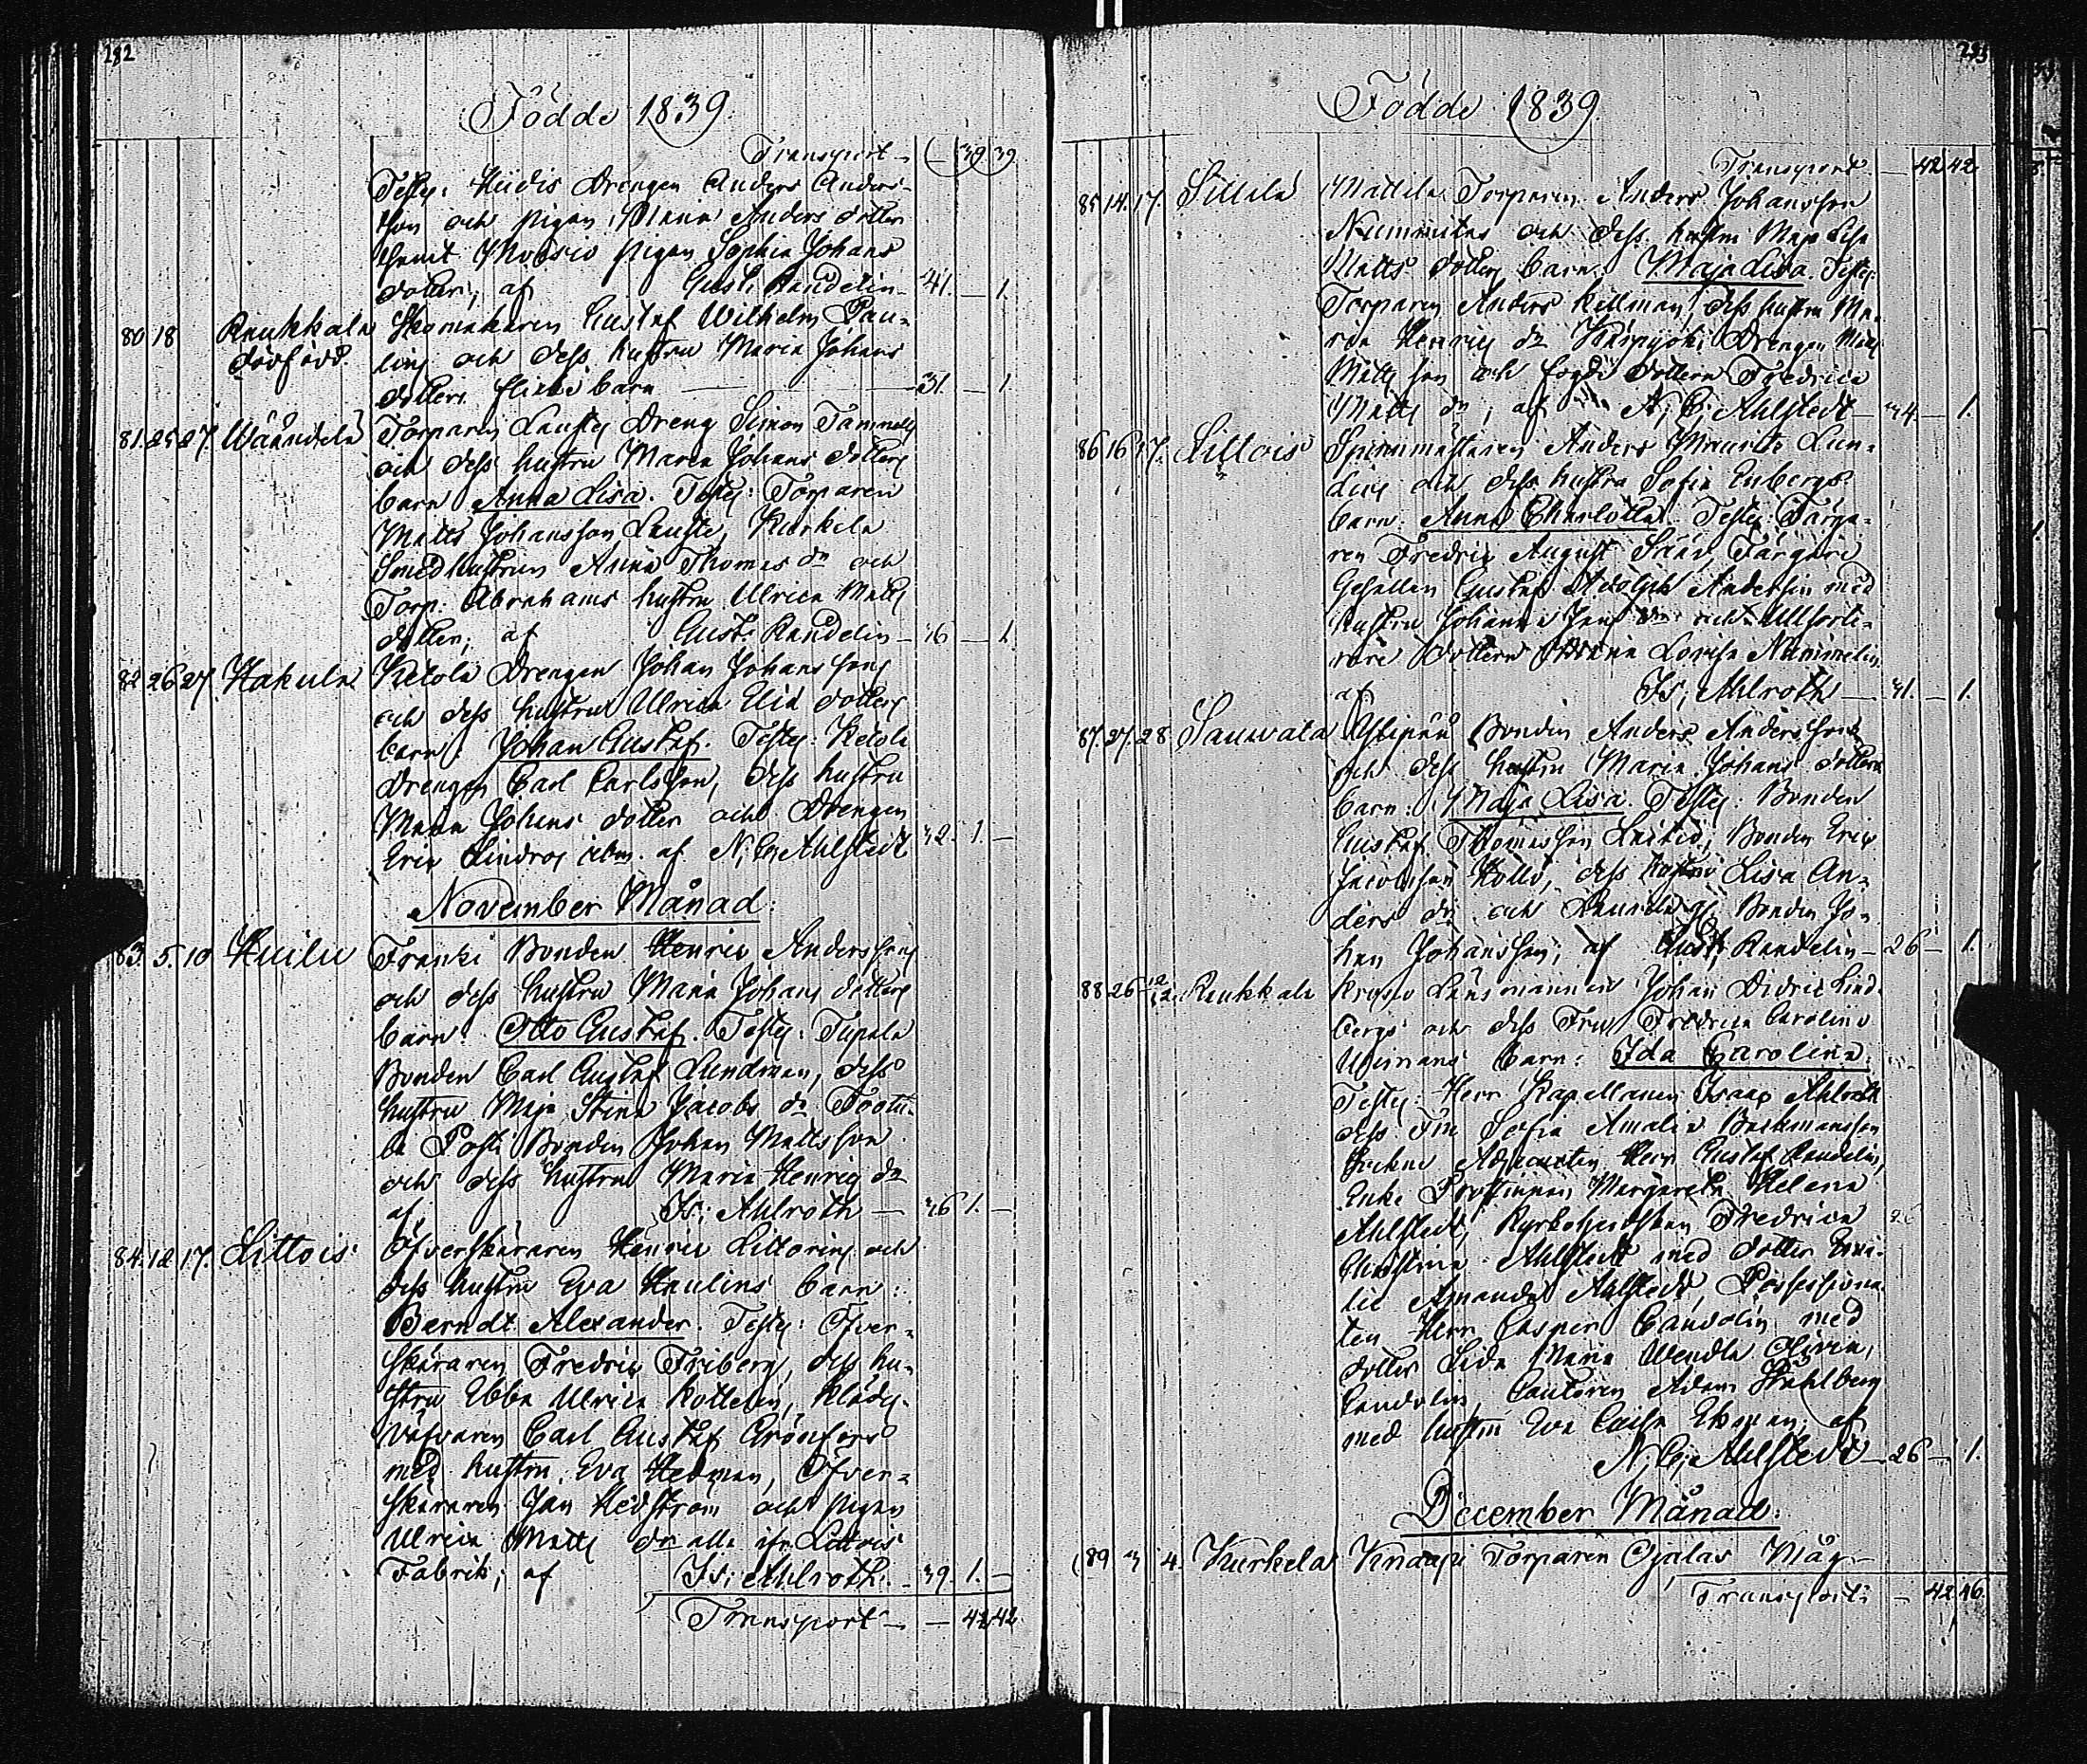 282
Födde 1839.
Transport — 39 39
Testes: Hiidis Drengen Anders Anders-
son och pigan Maria Anders dotter
samt Moisio pigan Sophia Johans
dotter; af Gust. Randelin — 41. — 1.
80 18 Raukkala Skomakaren Gustaf Wilhelm Pau-
dödfödd. lins och dess hustru Maria Johans
dotters flicke barn — 31. — 1.
81. 25 27. Wäändelä Torparen Laustes Dreng Simon
och dess hustru Maria Johans dotters
barn Anna Lisa. Testes: Torparen
Matts Johansson Lauste, Kurkela
Smedhustrun Anna Thomas dr och
Torp. Abrahams hustru Ulrica Matts
dotter; af Gust. Randelin — 46 — 1.
82 26 27. Hakula Ketola Drengen Johan Johanssons
och dess hustrus Ulrica Eliæ dotters
barn: Johan Gustaf. Testes: Ketola
Drengen Carl Carlsson, dess hustru
Maria Johans dotter och Drengen
Eric Lindros af N: C: Ahlstedt 42. 1. —
November Månad:
83. 5. 10 Kuilu Franki Bonden Henric Anderssons
och dess hustru Maria Johans dotters
barn: Otto Gustaf. Testes: Tupala
Bonden Carl Gustaf Lundman, dess
hustru Maja Stina Jacobs dr
Posti Bonden Johan Mattsson
och dess hustru Maria Henrics dr
af Is: Ahlroth — 46 1. —
84. 12 17. Littois Öfverskäraren Henric Littorins och
dess hustru Eva Haulins barn:
Berndt Alexander. Testes: Öfver-
skäraren Fredric Friberg, dess hu-
stru Ebba Ulrica Kottelin, Klädes-
väfvaren Carl Gustaf Grönfors
med hustru Eva Hedman, Öfver-
skäraren Jan Hedström och pigan
Ulrica Matts dr alla ifr. Littois
Fabrik; af Is: Ahlroth. — 39. 1. —
Transport — — 42 42
283
Födde 1839.
Transport — 42 42
85 14. 17. Sillilä Mattila Torparen Anders Johansson
och dess hustru Maja Lisa
Matts dotters barn: Maja Lisa. Testes:
Torparen Anders Kellman, dess hustru Ma-
ria Henrics dr Drengen Matts
Matts son och fogde dottern Fredrica
Matts dr; af N: C: Ahlstedt — 44 — 1.
86 16 17. Littois Spinnmästaren Anders Maurits Lun-
dens och dess hustru Sofia Enbergs
barn: Anna Charlotta. Testes: Färga-
ren Fredric August Färgare
Gesällen Gustaf Adolph Andersin med
hustru Johanna Jans dr och
dottern Maria Lovisa Nummelin
af Is: Ahlroth — 41. — 1.
87. 27. 28 Sauvala Bonden Anders Anderssons
och dess hustru Maria Johans dotters
barn: Maja Lisa. Testes: Bonden
Gustaf Thomasson Bonden Eric
Jacobsson dess hustru Lisa An-
ders dr och Bonden Jo-
han Johansson; af Gust. Randelin — 26 — 1.
88 26 12/12. Raukkala Krono Länsmannen Johan Didric Lind-
bergs och dess Fru Fredrica Carolina
Uhmans barn: Ida Carolina.
Testes: Herr Kapellanen Isaac Ahlroth
dess Fru Sofia Amalia Backmansson
Socken Adjuncten Herr Gustaf Randelin,
Enke Prostinnan Margaretha Helena
Ahlstedt, Kyrkoherdskan Fredrica
Christina Ahlstedt med dotter Emi-
lie Amanda Ahlstedt, Possessiona-
ten Herr Casper Candolin med
dotter Lida Maria Wendla Olivia,
Candolin Cantoren Adam Ståhlberg
med hustru Eva Caisa Ekman; af
N: C: Ahlstedt — 26 — 1.
December Månad:
89 3 4. Kurkela Knaapi Torparen Ojalas Måg
Transport: — 42 46